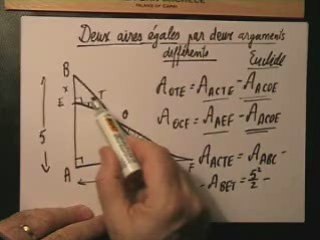 Deux aires égales par deux arguments
différents
Euclide
A_OTE = A_ACTE - A_ACOE
A_OCF = A_AEF - A_ACOE
A_ACTE = A_ABC -
- A_BET = 5²/2 -
B
x
E
T
O
5
A
F